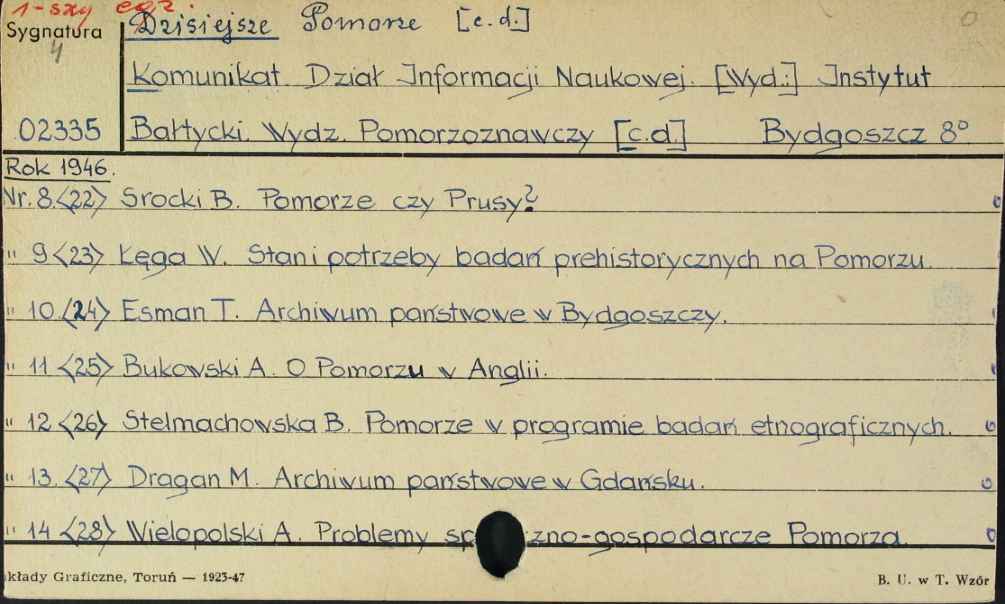 1-szy egz.
Dzisiejsze Pomorze [c.d.]
Sygnatura
4
Komunikat. Dział Informacji Naukowej. [Wyd.:] Instytut
02335 Bałtycki. Wydz. Pomorzoznawczy [c.d.] Bydgoszcz 8°
Rok 1946.
Nr. 8.<22> Srocki B. Pomorze czy Prusy?
" 9 <23> Łęga W. Stan i potrzeby badań prehistorycznych na Pomorzu.
" 10.<24> Esman T. Archiwum państwowe w Bydgoszczy.
" 11 <25> Bukowski A. O Pomorzu w Anglii.
" 12 <26> Stelmachowska B. Pomorze w programie badań etnograficznych.
" 13. <27> Dragan M. Archiwum państwowe w Gdańsku.
" 14 <28> Wielopolski A. Problemy sp zno-gospodarcze Pomorza.
kłady Graficzne, Toruń — 1923-47
B. U. w T. Wzór